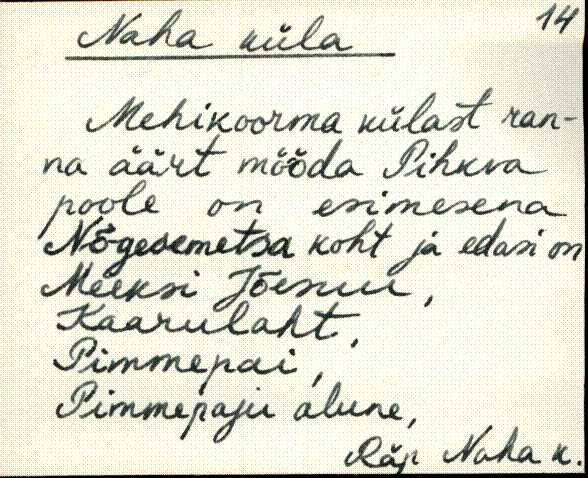 14
Naha küla
Mehikoorma külast ran-
na äärt mööda Pihkva
poole on esimesena
Nõgesemetsa koht ja edasi on
Meeksi Jõesuu,
Kaarulaht,
Pimmepai,
Pimmepaju alune,
Räp Naha k.